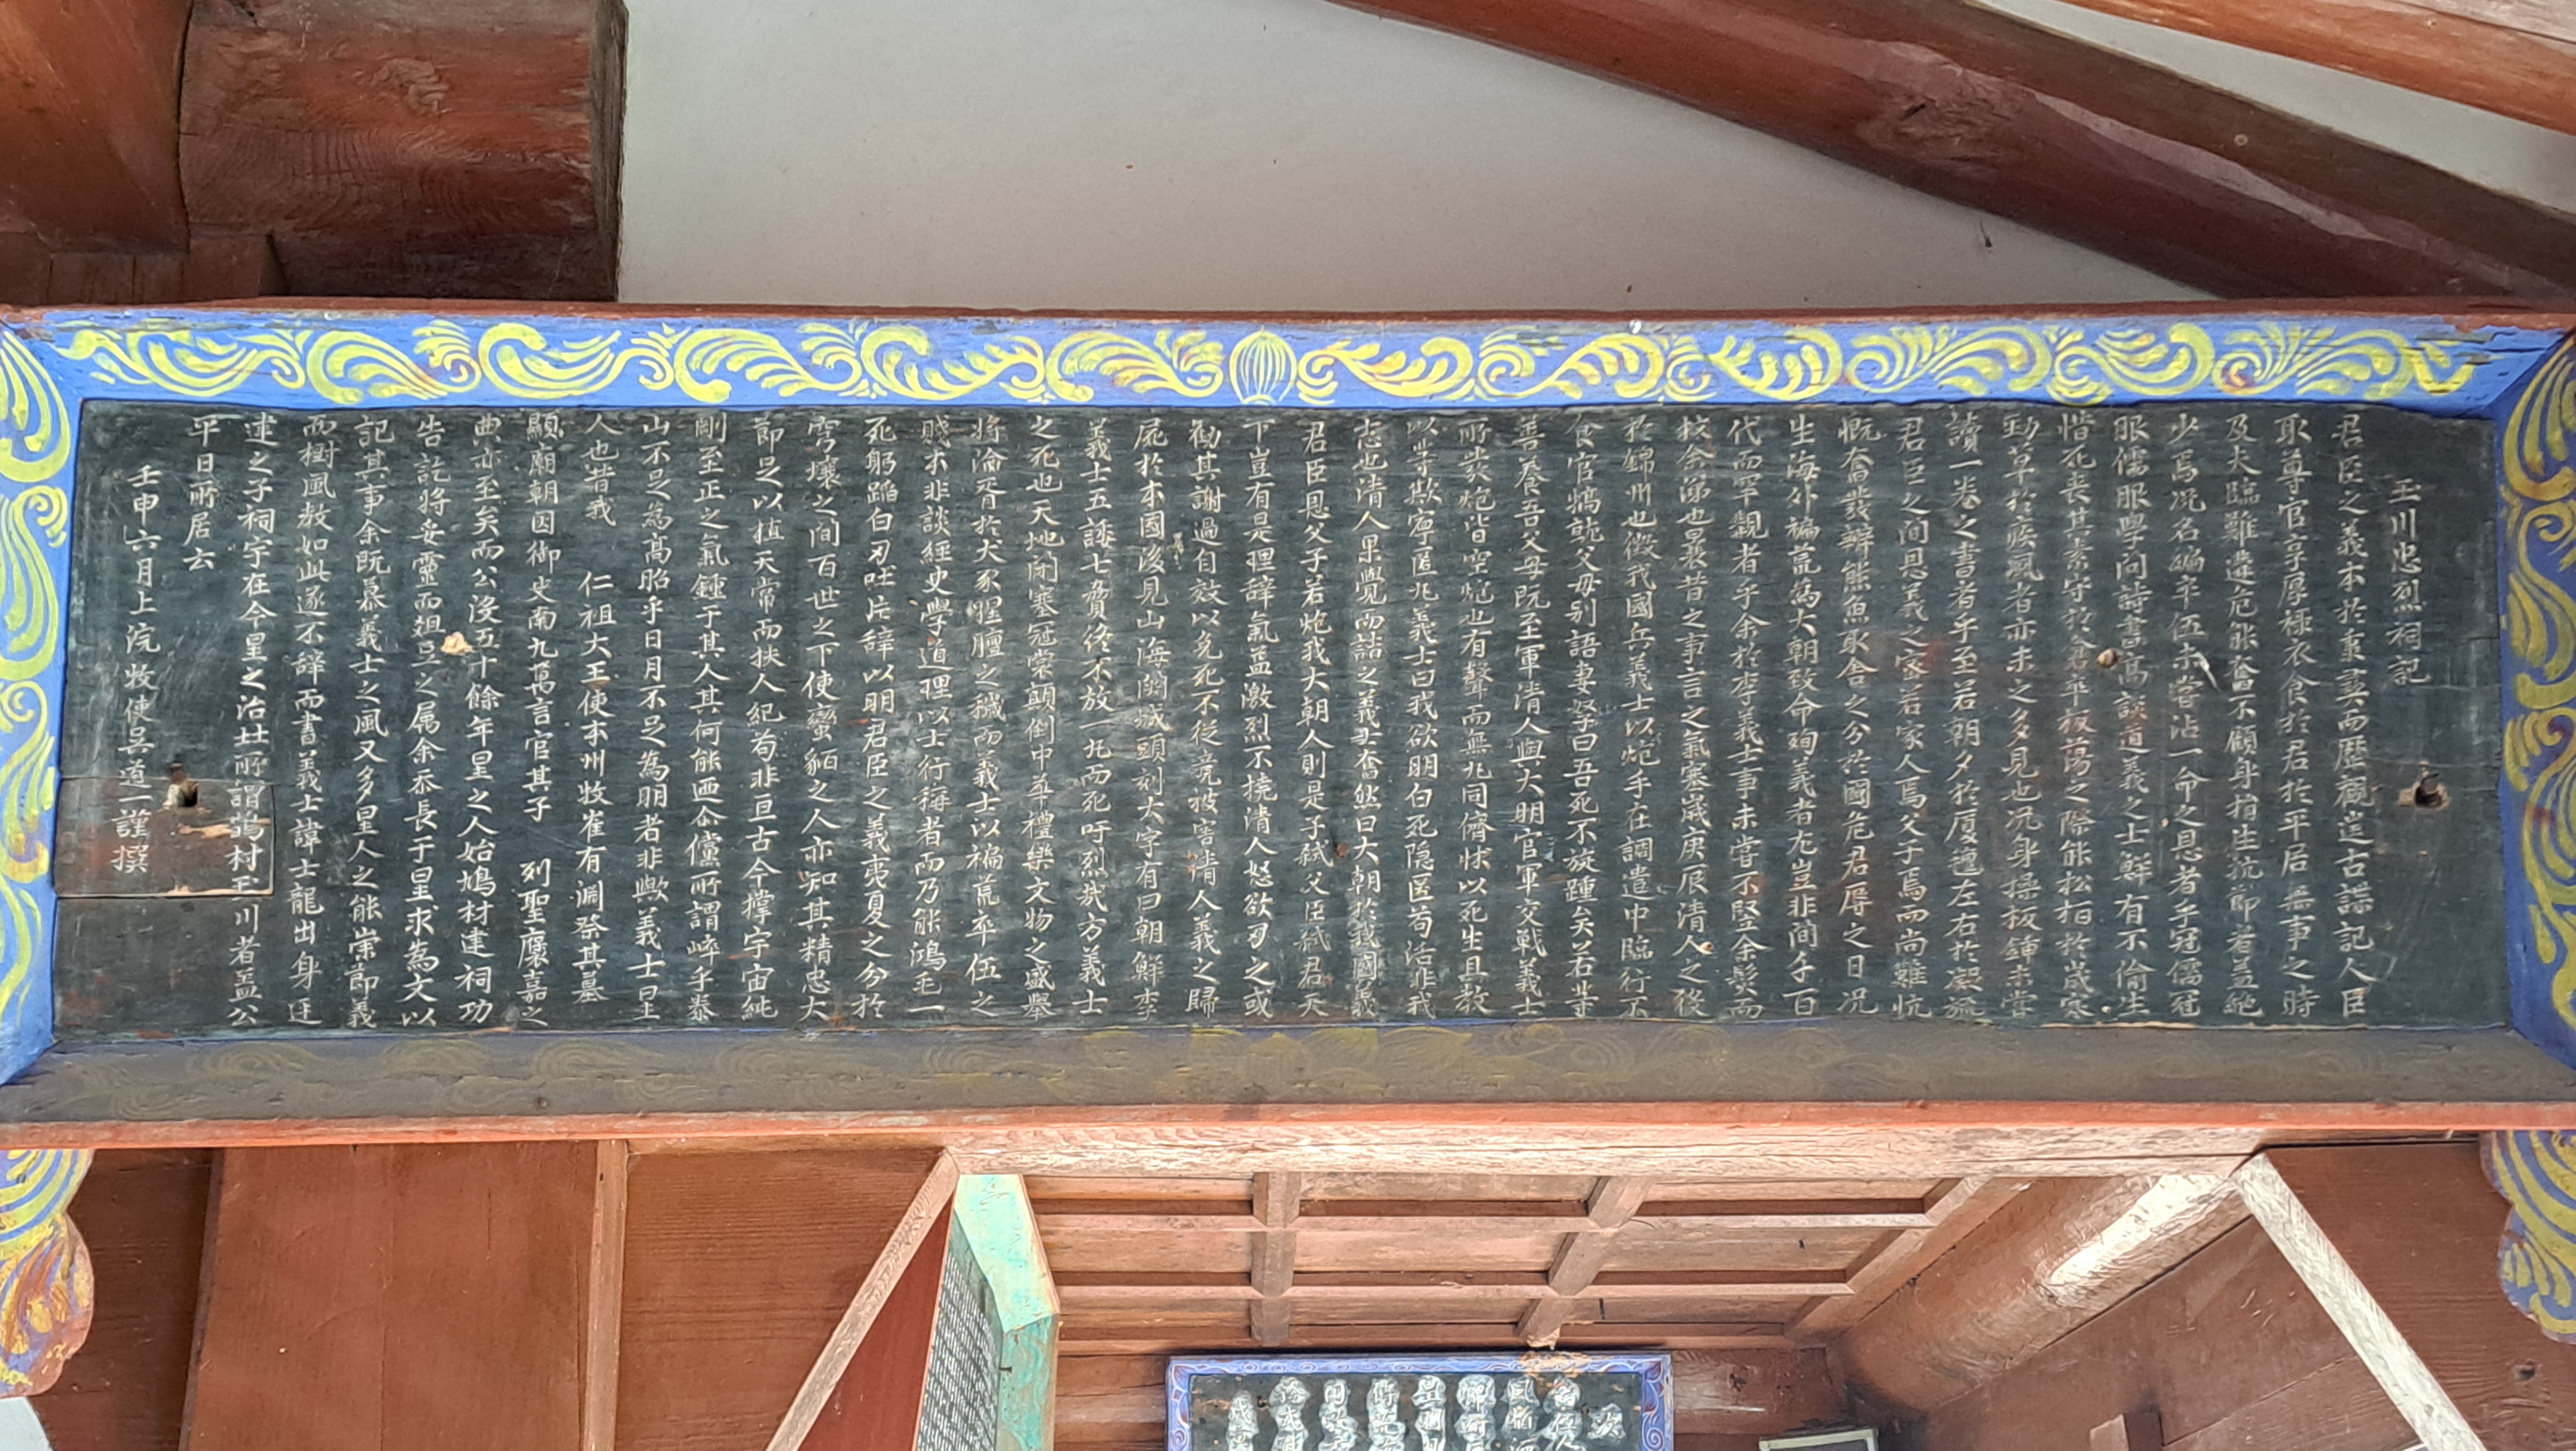 玉川忠烈祠記
君臣之義本於秉彛而歷觀往古諜記人臣
取尊官享厚祿衣食於君於平居無事之時
及夫臨難遭危能奮不顧身捐生抗節者盖絶
少焉况名編卒伍未嘗沾一命之恩者乎冠儒冠
服儒服學问詩書高談道義之士鮮有不偷生
惜死丧其素守於倉卒板蕩之際能松柏於歲寒
勁草於疾風者亦未之多見也况身操板鍾未嘗
讀一卷之書者乎至若朝夕於厦氊左右於凝旒
君臣之间恩義之密若家人焉父子焉而尚難忼
慨奮發辨熊魚取舍之分於國危君辱之日况
生海外褊荒為大朝致命殉義者尤豈非间千百
代而罕覯者乎余於李義士事未嘗不竪余髮而
扙余涕也曩昔之事言之氣塞歲庚辰清人之役
於錦州也徵我國兵義士以炮手在調遣中臨行不
食官犒就父母别語妻孥曰吾死不旋踵矣若等
善養吾父母既至軍清人與大明官軍交戰義士
所發炮皆空炮也有聲而無丸同儕怵以死生且教
以等欺寧匿丸義士曰我欲明白死隐匿苟活非我
志也清人果覺而詰之義士奮然曰大朝於我國義
君臣恩父子若炮我大朝人則是子弑父臣弑君天
下豈有是理辞氣益激烈不撓清人怒欲刃之或
勸其謝過自效以免死不従竟被害清人義之歸
屍於本國後見山海關城頭刻大字有曰朝鮮李
義士五誘七賚终不放一丸而死吁烈哉方義士
之死也天地闭塞冠裳顛倒中華禮樂文物之盛舉
将淪胥於犬豕腥膻之穢而義士以褊荒卒伍之
賤本非談經史學道理以士行稱者而乃能鴻毛一
死躬蹈白刃吐片辭以明君臣之義夷夏之分於
穹壤之间百世之下使蠻貊之人亦知其精忠大
節足以植天常而扶人紀苟非亘古今撑宇宙純
剛至正之氣鍾于其人其何能迺尒儻所謂崒乎泰
山不足為高昭乎日月不足為明者非歟義士星
人也昔我　仁祖大王使本州牧崔有淵祭其墓
顯廟朝因御史南九萬言官其子　列聖襃嘉之
典亦至矣而公沒五十餘年星之人始鳩材建祠功
告訖将妥靈而俎豆之属余忝長于星求為文以
記其事余既慕義士之風又多星人之能崇節義
而樹風教如此遂不辞而書義士諱士龍出身廷
建之子祠宇在今星之治北所謂鵲村玉川者盖公
平日所居云
壬申六月上浣牧使吳道一謹撰